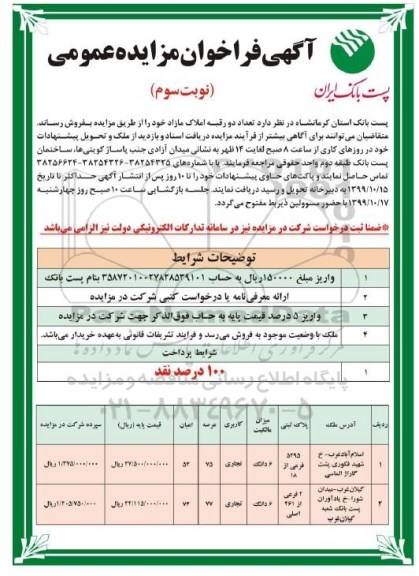 آگهی فراخوان مزایده عمومی
(نوبت سوم)
پست بانک ایران
پست بانک استان کرمانشاه در نظر دارد تعداد دو رقبه املاک مازاد خود را از طریق مزایده بفروش رساند.
متقاضیان می‌توانند برای آگاهی بیشتر از فرآیند مزایده دریافت اسناد و بازدید از ملک و تحویل پیشنهادات
خود در روزهای کاری از ساعت ۸ صبح لغایت ۱۴ ظهر به نشانی میدان آزادی جنب پاساژ گویتی‌ها، ساختمان
پست بانک طبقه دوم واحد حقوقی مراجعه فرمایند. یا با شماره‌های ۳۸۲۵۴۳۲۵-۳۸۲۵۴۳۲۶-۳۸۲۵۶۶۲۴
تماس حاصل نمایند و پاکت‌های حاوی پیشنهادات خود را تا ۱۰ روز پس از انتشار آگهی حداکثر تا تاریخ
۱۳۹۹/۱۰/۱۵ به دبیرخانه تحویل و رسید دریافت نمایند. جلسه بازگشایی ساعت ۱۰ صبح روز چهارشنبه
۱۳۹۹/۱۰/۱۷ با حضور مسوولین ذیربط مفتوح می‌گردد.
*ضمنا ثبت درخواست شرکت در مزایده نیز در سامانه تدارکات الکترونیکی دولت نیز الزامی می‌باشد
توضیحات شرایط
۱ واریز مبلغ ۱۵۰۰۰۰ ریال به حساب ۳۵۸۷۲۰۱۰۰۲۷۸۲۸۵۳۹۱۰۱ بنام پست بانک
۲ ارائه معرفی‌نامه یا درخواست کتبی شرکت در مزایده
۳ واریز ۵ درصد قیمت پایه به حساب فوق‌الذکر جهت شرکت در مزایده
۴ ملک با وضعیت موجود به فروش می‌رسد و فرایند تشریفات قانونی به‌عهده خریدار می‌باشد.
شرایط پرداخت
۱ ۱۰۰ درصد نقد
پایگاه اطلاع رسانی مناقصه و مزایده
۰۲۱-۸۸۳۴۹۶۷۰-۵
ردیف آدرس ملک پلاک ثبتی میزان مالکیت کاربری عرصه اعیان قیمت پایه (ریال) سپرده شرکت در مزایده
۱ اسلام‌آبادغرب- خ شهید فکوری پشت گاراژ الماسی ۵۲۹۵ فرعی از ۱۸ ۶ دانگ تجاری ۷۵ ۵۲ ۲۷/۵۰۰/۰۰۰/۰۰۰ ریال ۱/۳۷۵/۰۰۰/۰۰۰ ریال
۲ گیلان‌غرب-میدان شورا-خ یادآوران پست بانک شعبه گیلان‌غرب ۲ فرعی از ۲۶۱ اصلی ۶ دانگ تجاری ۷۷ ۷۲ ۲۴/۱۱۵/۰۰۰/۰۰۰ ریال ۱/۲۰۵/۷۵۰/۰۰۰ ریال